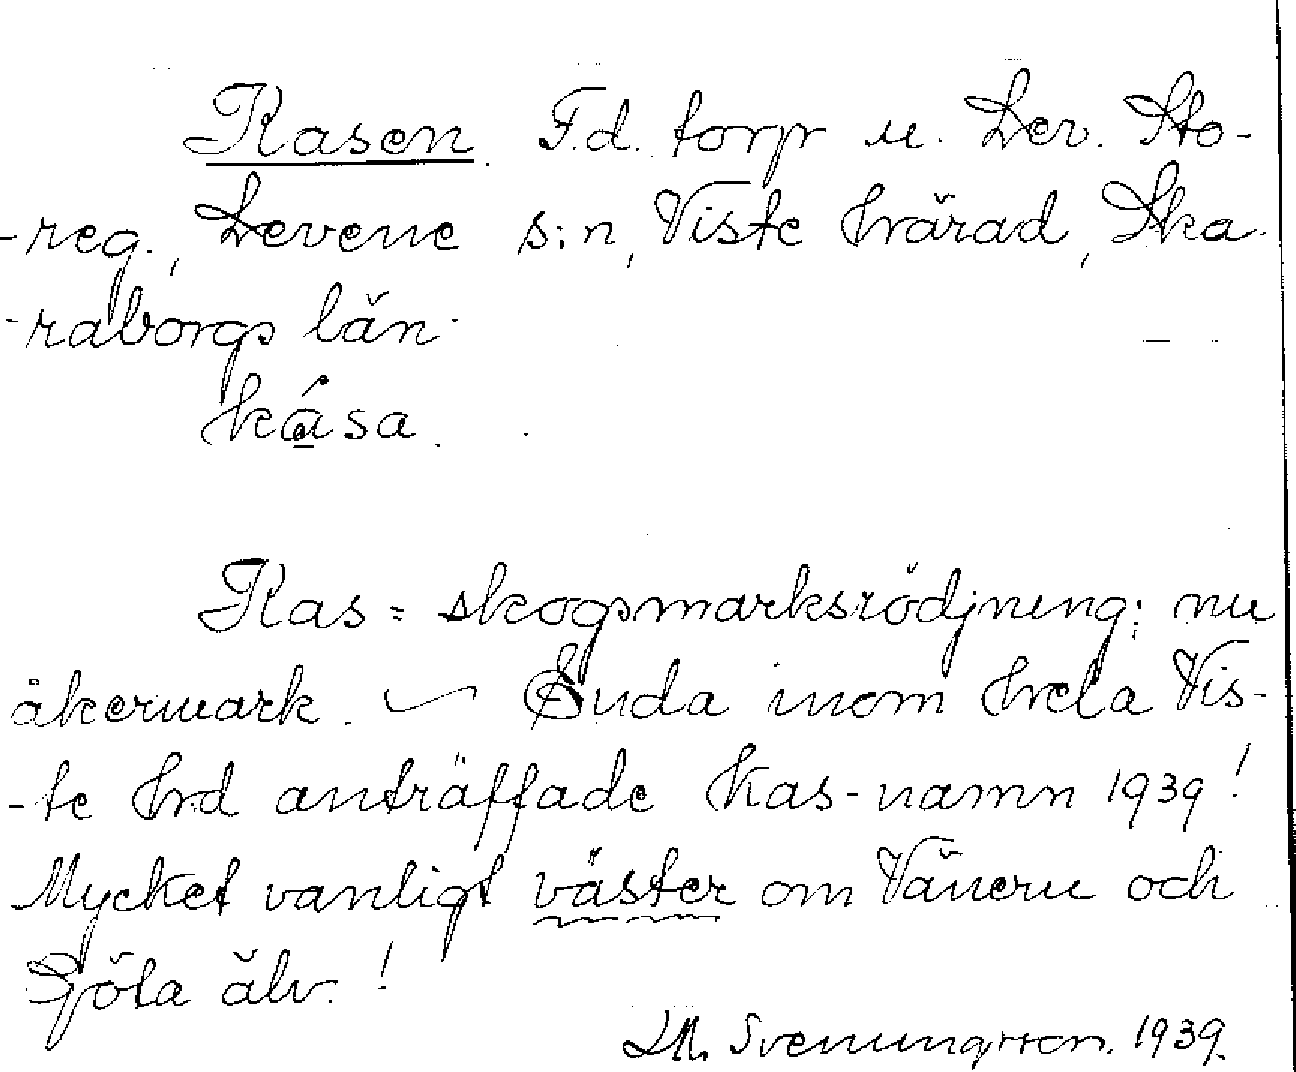 Kasen. F.d. torp u. Lev. Sto-
-reg., Levene s:n, Viste härad, Ska-
-raborgs län.
kása.
Kas = skogsmarksrödjning; nu
åkermark. — Enda inom hela Vis-
-te hrd anträffade Kas-namn 1939!
Mycket vanligt väster om Vänern och
Göta älv.!
LM. Svenungsson. 1939.